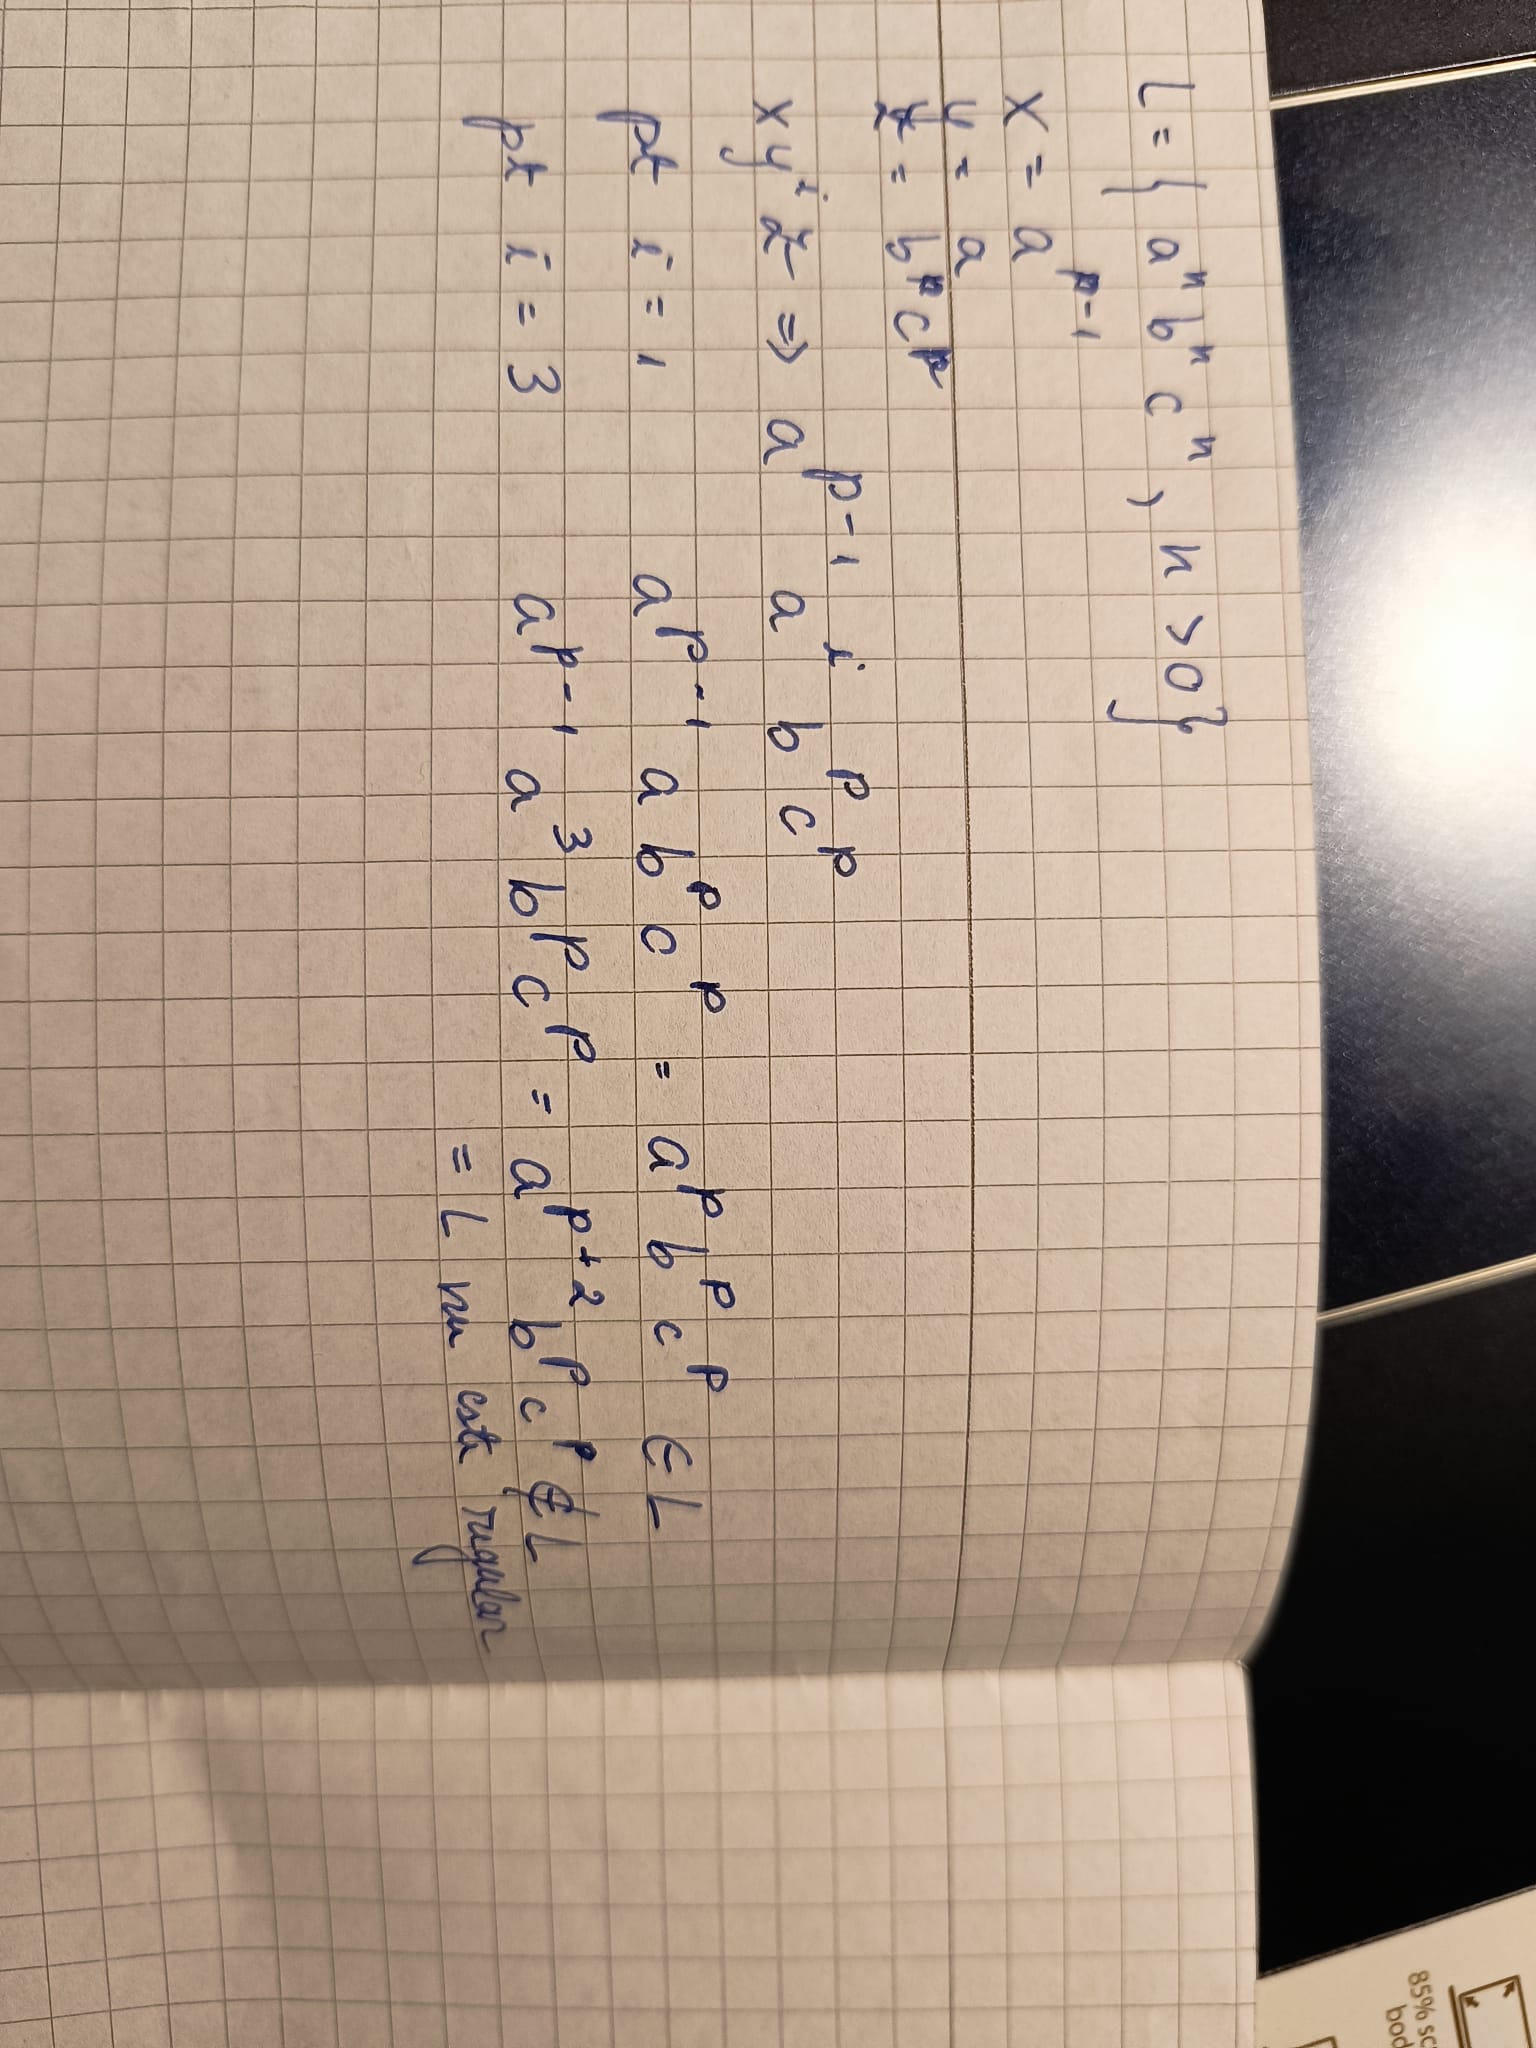 85% sc
bod
L = { aⁿ bⁿ cⁿ , n > 0 }
x = a^{p-1}
y = a
z = b^p c^p
xy^i z ⇒ a^{p-1} a^i b^p c^p
pt i = 1 a^{p-1} a b^p c^p = a^p b^p c^p ∈ L
pt i = 3 a^{p-1} a^3 b^p c^p = a^{p+2} b^p c^p ∉ L
= L nu este regular